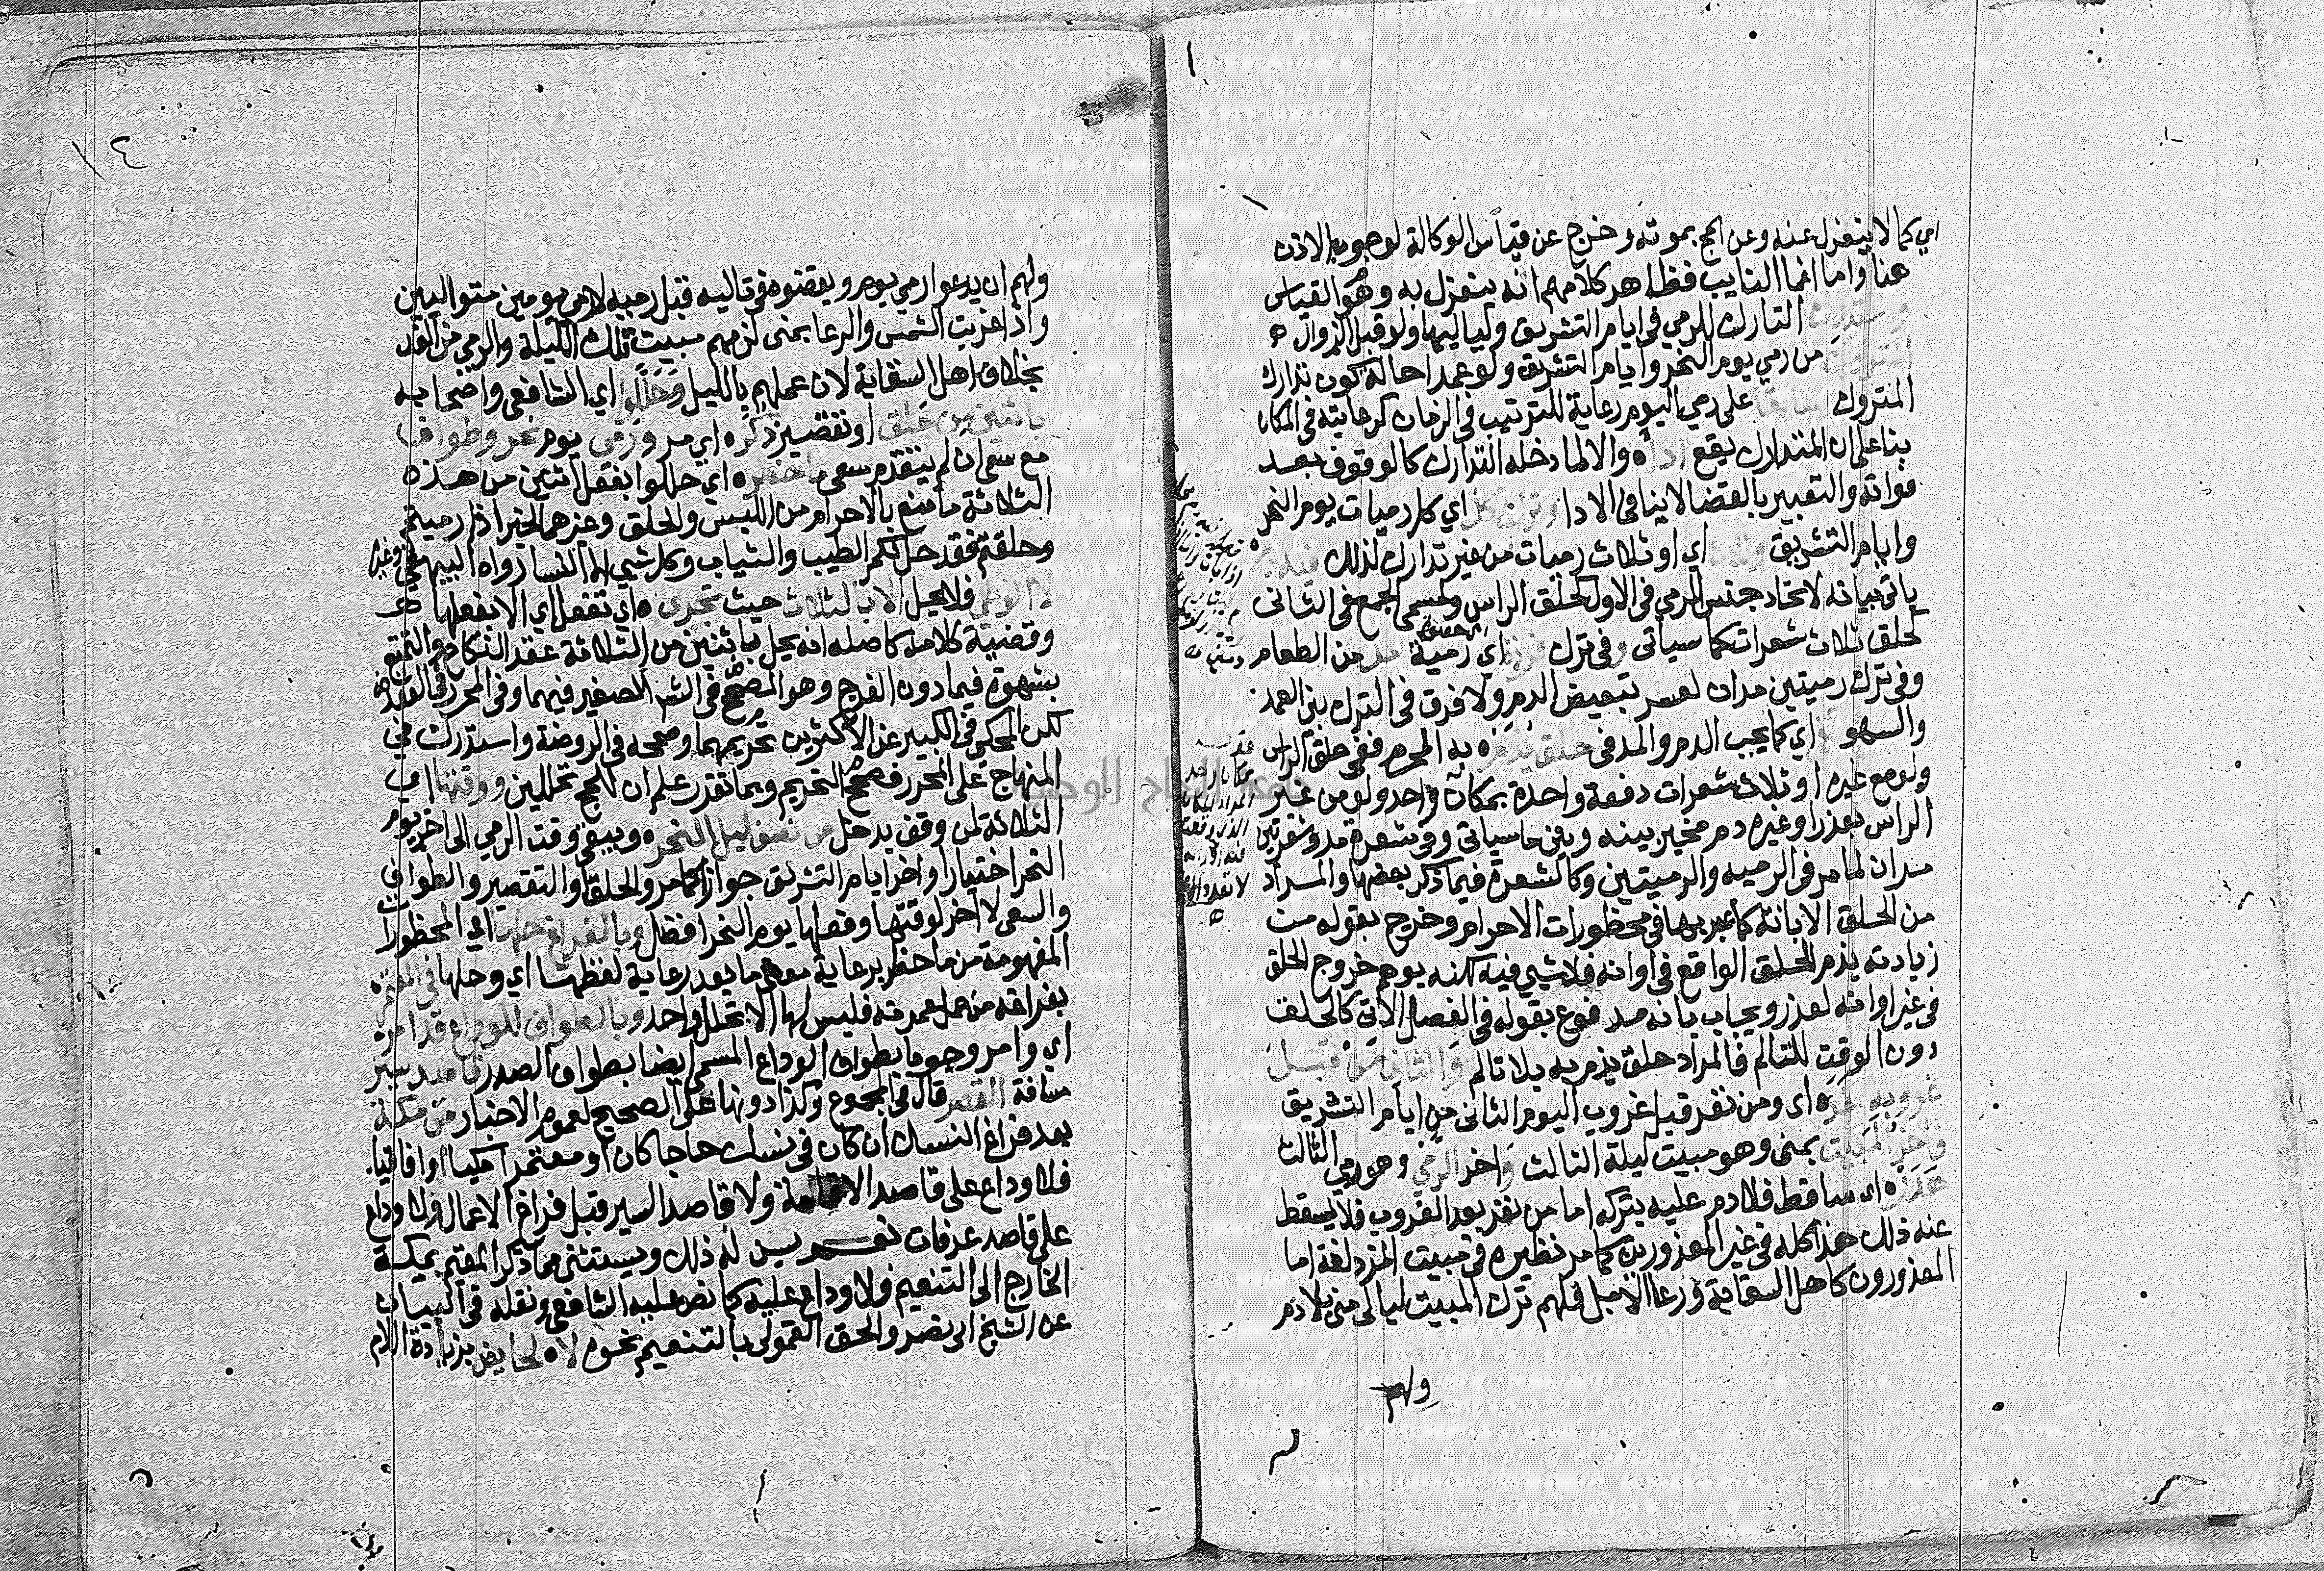 اي كما لا ينعزل عنه وعن الحج بموته وخرج عن قياس الوكالة لوجوب الاذن
هنا واما اغما النايب فظاهر كلامهم انه ينعزل به وهو القياس
التارك للرمي في ايام التشريق ولياليها ولو قبل الزوال
من رمي يوم النحر وايام التشريق ولو عمدا حالة كون تدارك
المتروك سابقا على رمي اليوم رعاية للترتيب في الزمان كرعايته في المكان
بنا على ان المتدارك يقع اداه والا لما دخله التدارك كالوقوف بعد
فواته والتعبير بالقضا لا ينافي الادا وترك كل اي كل رميات يوم النحر
وايام التشريق وثلاث اي او ثلاث رميات من غير تدارك لذلك فيه دم
ياتي بيانه لاتحاد جنس الرمي في الاول كحلق الراس ولمسمى الجمع في الثاني
كحلق ثلاث شعرات كما سياتي وفي ترك فردة اي رمية مد من الطعام
وفي ترك رميتين مدان لعسر تبعيض الدم ولا فرق في الترك بين العمد
والسهو اي كما يجب الدم والمد في حلق يذمه به المحرم ففي حلق الراس
ولو مع غيره او ثلاث شعرات دفعة واحدة بمكان واحد ولو من غير
الراس بعذر او غيره دم مخير بينه وبين ما سياتي وفي شعرة مد وشعرتين
مدان لما مر في الرمية والرميتين وكالشعرة فيما ذكر بعضها والمراد
من الحلق الابانة كما عبر بها في محظورات الاحرام وخرج بقوله من
زيادته يذم الحلق الواقع في اوانه فلا شي فيه لكنه يوهم خروج الحلق
في غير اوانه لعذر ويجاب بانه مدفوع بقوله في الفصل الاتي كالحلق
دون الوقت للتالم فالمراد حلق يذم به بلا تالم والثاني من قبل
غروبه اي ومن نفر قبل غروب اليوم الثاني من ايام التشريق
فاخر المبيت بمنى وهو مبيت ليلة الثالث واخر الرمي وهو رمي الثالث
هدره اي ساقط فلا دم عليه بتركه اما من نفر بعد الغروب فلا يسقط
عنه ذلك هذا كله في غير المعذورين كما مر نظيره في مبيت المزدلفة اما
المعذورون كاهل السقاية ورعا الابل فلهم ترك المبيت ليالي منى بلا دم
ولهم
١٤
ولهم ان يدعوا رمي يوم ويقضوه في تاليه قبل رميه لا رمي يومين متواليين
واذا غربت الشمس والرعا بمنى لزمهم مبيت تلك الليلة والرمي من الغد
بخلاف اهل السقاية لان عملهم بالليل وحللوا اي الشافعي واصحابه
باثنين من حلق او تقصير ذكره اي مر ورمي يوم نحر وطواف
مع سعي ان لم يتقدم سعي ما حظره اي حللوا بفعل اثنين من هذه
الثلاثة ما منع بالاحرام من اللبس والحلق وغيرهما لخبر اذا رميتم
وحلقتم فقد حل لكم الطيب والثياب وكل شي الا النسا رواه البيهقي وغيره
لا الوطي فلا يحل الا بالثلاث حيث تجرى اي تفعل اي الا بفعلها
وقضية كلامه كاصله انه يحل باثنين من الثلاثة عقد النكاح والتمتع
بشهوة فيما دون الفرج وهو المصحح في الشرح الصغير فيهما وفي المحرر في العقد
لكن المحكي في الكبير عن الاكثرين تحريمهما وصححه في الروضة واستدرك في
المنهاج على المحرر فصحح التحريم وبما تقرر علم ان للحج تحللين ووقتها اي
الثلاثة لمن وقف يدخل من نصف ليل النحر ويبقى وقت الرمي الى اخر يوم
النحر اختيارا واخر ايام التشريق جوازا كما مر والحلق او التقصير والطواف
والسعي لا اخر لوقتها وفعلها يوم النحر افضل وبالفراغ حلها اي المحظورات
المفهومة من ما حظر برعاية معنى ما بعد رعاية لفظها اي وحلها في العمرة
بفراغه من عمل عمرته فليس لها الا تحلل واحد وبالطواف للوداع قد امره
اي وامر وجوبا بطواف الوداع المسمى ايضا بطواف الصدر قاصد سير
مسافة القصر قال في المجموع وكذا دونها على الصحيح لعموم الاخبار من مكة
بعد فراغ النسك ان كان في نسك حاجا كان او معتمرا مكيا او افاقيا
فلا وداع على قاصد الاقامة ولا قاصد السير قبل فراغ الاعمال ولا وداع
على قاصد عرفات نعم يسن له ذلك ويستثنى مما ذكر المقيم بمكة
الخارج الى التنعيم فلا وداع عليه كما نص عليه الشافعي ونقله في البيان
عن الشيخ ابي نصر والحق القمولي بالتنعيم نحوه لا لحايض بزيادة اللام